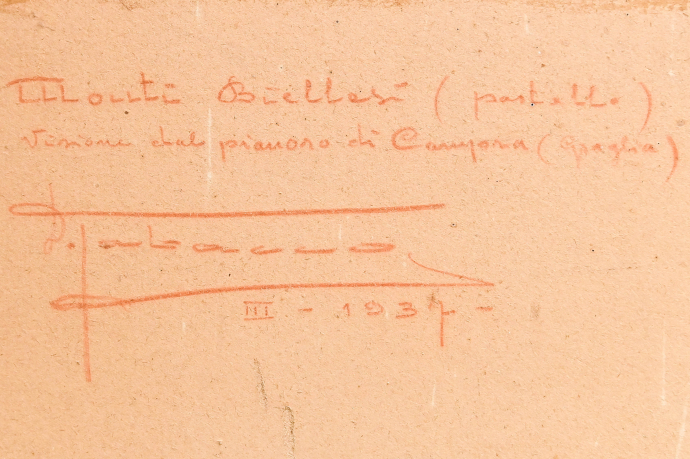 Monti Biellesi (pastello)
Visione dal pianoro di Campora (Graglia)
P. Tabacco
III - 1937 -